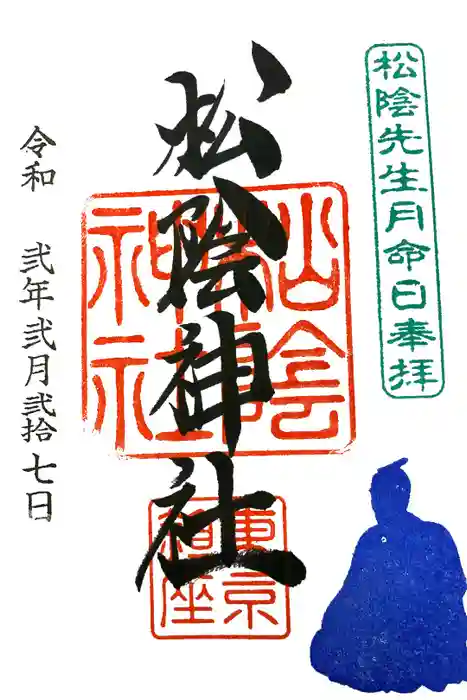 松陰先生月命日奉拝
松陰神社
東京
令和 弐年弐月弐拾七日